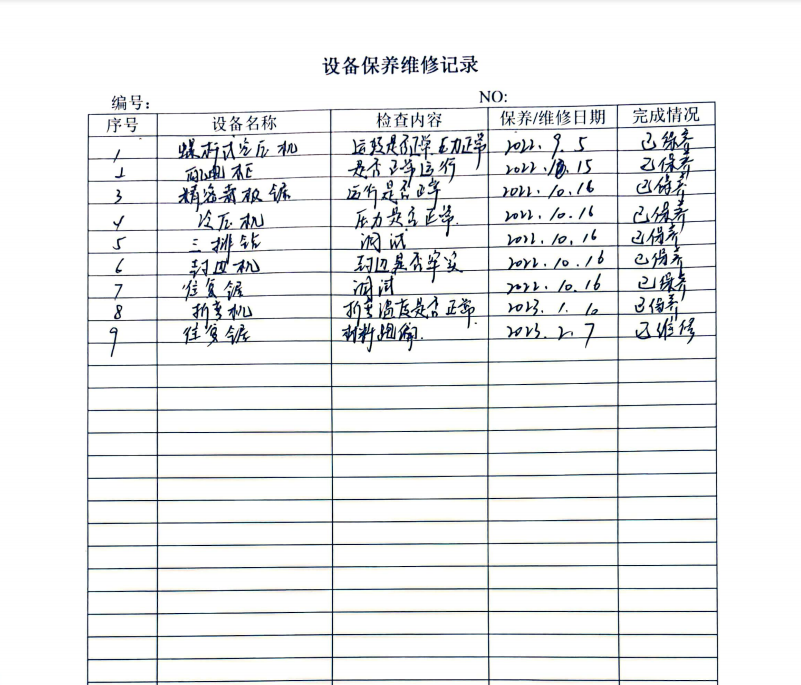 设备保养维修记录
编号： NO:
序号 设备名称 检查内容 保养/维修日期 完成情况
1 螺杆式空压机 运转是否正常 压力正常 2022.9.5 已保养
2 配电柜 是否正常运行 2022.10.15 已保养
3 精密裁板锯 运行是否正常 2022.10.16 已保养
4 冷压机 压力是否正常. 2022.10.16 已保养
5 三排钻 调试 2022.10.16 已保养
6 封边机 封边是否牢实 2022.10.16 已保养
7 往复锯 调试 2022.10.16 已保养
8 折弯机 折弯温度是否正常. 2023.1.10 已保养
9 往复锯 2023.2.7 已维修